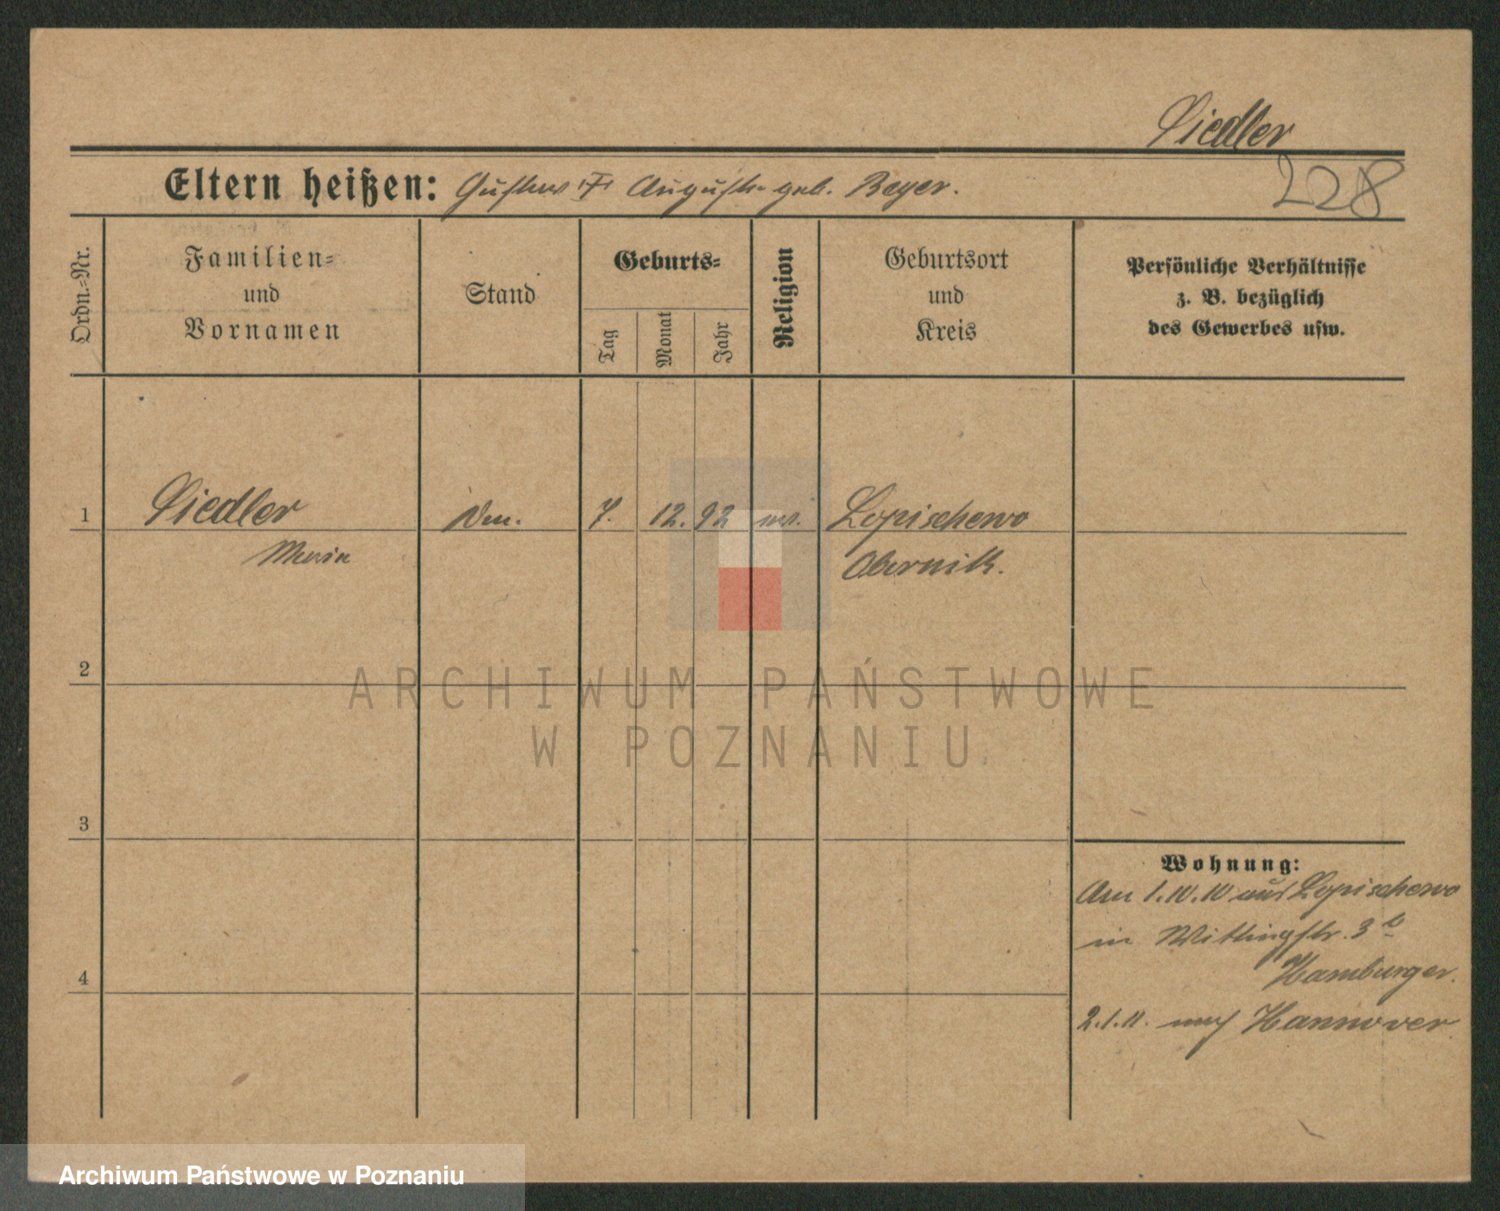 Siedler
228
Eltern heißen: Gustav † Auguste geb. Beyer.
Ordn.-Nr.
Familien-
und
Vornamen
Stand
Geburts-
Tag
Monat
Jahr
Religion
Geburtsort
und
Kreis
Persönliche Verhältnisse
z. B. bezüglich
des Gewerbes usw.
1 Siedler 7. 12. 92 Lopischewo
Maria Obernik.
2
ARCHIWUM PAŃSTWOWE
W POZNANIU
3
Wohnung:
Am 1.10.10 aus Lopischewo
in Wittingstr. 3 b
Hamburger.
4
2.1.11. nach Hannover
Archiwum Państwowe w Poznaniu